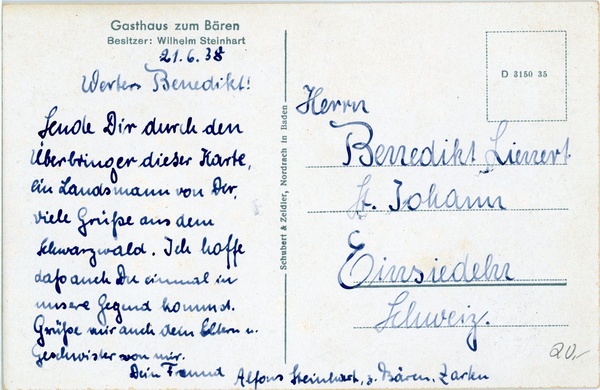 Gasthaus zum Bären
Besitzer: Wilhelm Steinhart
21.6.38
Wertes Benedikt!
Sende Dir durch den
Überbringer dieser Karte,
Ein Landsmann von Dir,
viele Grüße aus dem
Schwarzwald. Ich hoffe
daß auch Du einmal in
unsere Gegend kommst.
Grüße mir auch dein Eltern u.
Geschwister von mir.
Dein Freund Alfons Steinhart, z. Bären, Zarten
Schubert & Zeidler, Nordrach in Baden
D 3150 35
Herrn
Benedikt Lienert
St. Johann
Einsiedeln
Schweiz.
20,-